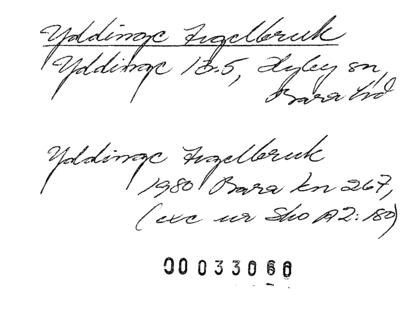 Yddinge Tegelbruk
Yddinge 13.5, Hyby sn,
Bara hd
Yddinge Tegelbruk
1980 Bara kn 267,
(exc ur Sho A2:180)
00033060